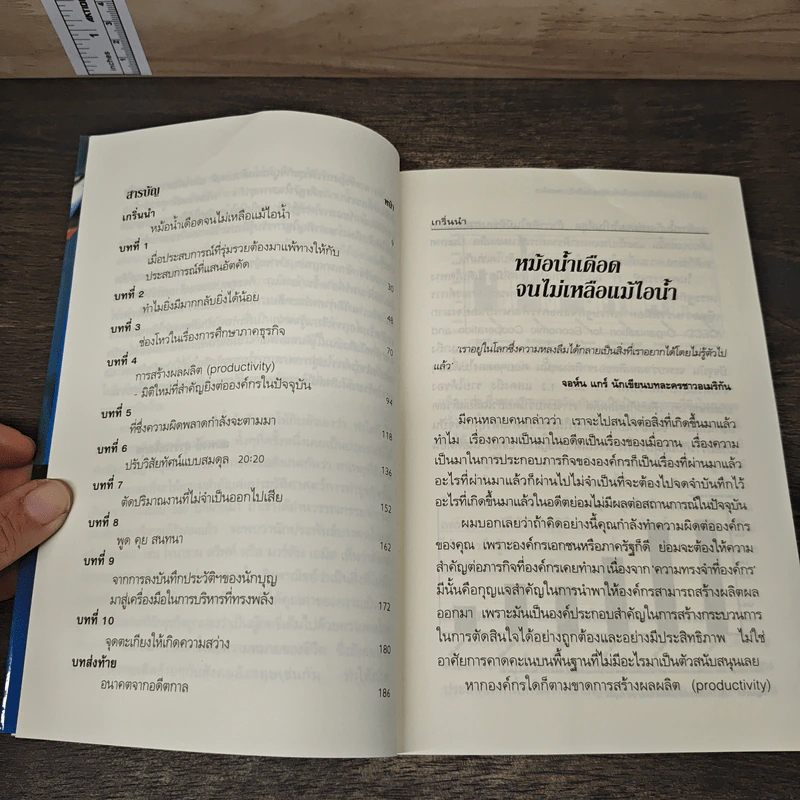 สารบัญ
หน้า
เกริ่นนำ
หม้อน้ำเดือดจนไม่เหลือแม้ไอน้ำ
บทที่ 1
เมื่อประสบการณ์ที่รุ่มรวยต้องมาแพ้ทางให้กับ
ประสบการณ์ที่แสนอัตคัด 30
บทที่ 2
ทำไมยิ่งมีมากกลับยิ่งได้น้อย 48
บทที่ 3
ช่องโหว่ในเรื่องการศึกษาภาคธุรกิจ 70
บทที่ 4
การสร้างผลผลิต (productivity)
- มิติใหม่ที่สำคัญยิ่งต่อองค์กรในปัจจุบัน 94
บทที่ 5
ที่ซึ่งความผิดพลาดกำลังจะตามมา 118
บทที่ 6
ปรับวิสัยทัศน์แบบสมดุล 20:20 136
บทที่ 7
ตัดปริมาณงานที่ไม่จำเป็นออกไปเสีย 152
บทที่ 8
พูด คุย สนทนา 162
บทที่ 9
จากการลงบันทึกประวัติฯของนักบุญ
มาสู่เครื่องมือในการบริหารที่ทรงพลัง 172
บทที่ 10
จุดตะเกียงให้เกิดความสว่าง 180
บทส่งท้าย
อนาคตจากอดีตกาล 186
เกริ่นนำ
หม้อน้ำเดือด
จนไม่เหลือแม้ไอน้ำ
'เราอยู่ในโลกซึ่งความหลงลืมได้กลายเป็นสิ่งที่เราอยากได้โดยไม่รู้ตัวไป
แล้ว'
จอห์น แกร์ นักเขียนบทละครชาวอเมริกัน
มีคนหลายคนกล่าวว่า เราจะไปสนใจต่อสิ่งที่เกิดขึ้นมาแล้ว
ทำไม เรื่องความเป็นมาในอดีตเป็นเรื่องของเมื่อวาน เรื่องความ
เป็นมาในการประกอบภารกิจขององค์กรก็เป็นเรื่องที่ผ่านมาแล้ว
อะไรที่ผ่านมาแล้วก็ผ่านไปไม่จำเป็นที่จะต้องไปจดจำบันทึกไว้
อะไรที่เกิดขึ้นมาแล้วในอดีตย่อมไม่มีผลต่อสถานการณ์ในปัจจุบัน
ผมบอกเลยว่าถ้าคิดอย่างนี้คุณกำลังทำความผิดต่อองค์กร
ของคุณ เพราะองค์กรเอกชนหรือภาครัฐก็ดี ย่อมจะต้องให้ความ
สำคัญต่อภารกิจที่องค์กรเคยทำมา เนื่องจาก 'ความทรงจำที่องค์กร'
มีนั้นคือกุญแจสำคัญในการนำพาให้องค์กรสามารถสร้างผลิตผล
ออกมา เพราะมันเป็นองค์ประกอบสำคัญในการสร้างกระบวนการ
ในการตัดสินใจได้อย่างถูกต้องและอย่างมีประสิทธิภาพ ไม่ใช่
อาศัยการคาดคะเนบนพื้นฐานที่ไม่มีอะไรมาเป็นตัวสนับสนุนเลย
หากองค์กรใดก็ตามขาดการสร้างผลผลิต (productivity)